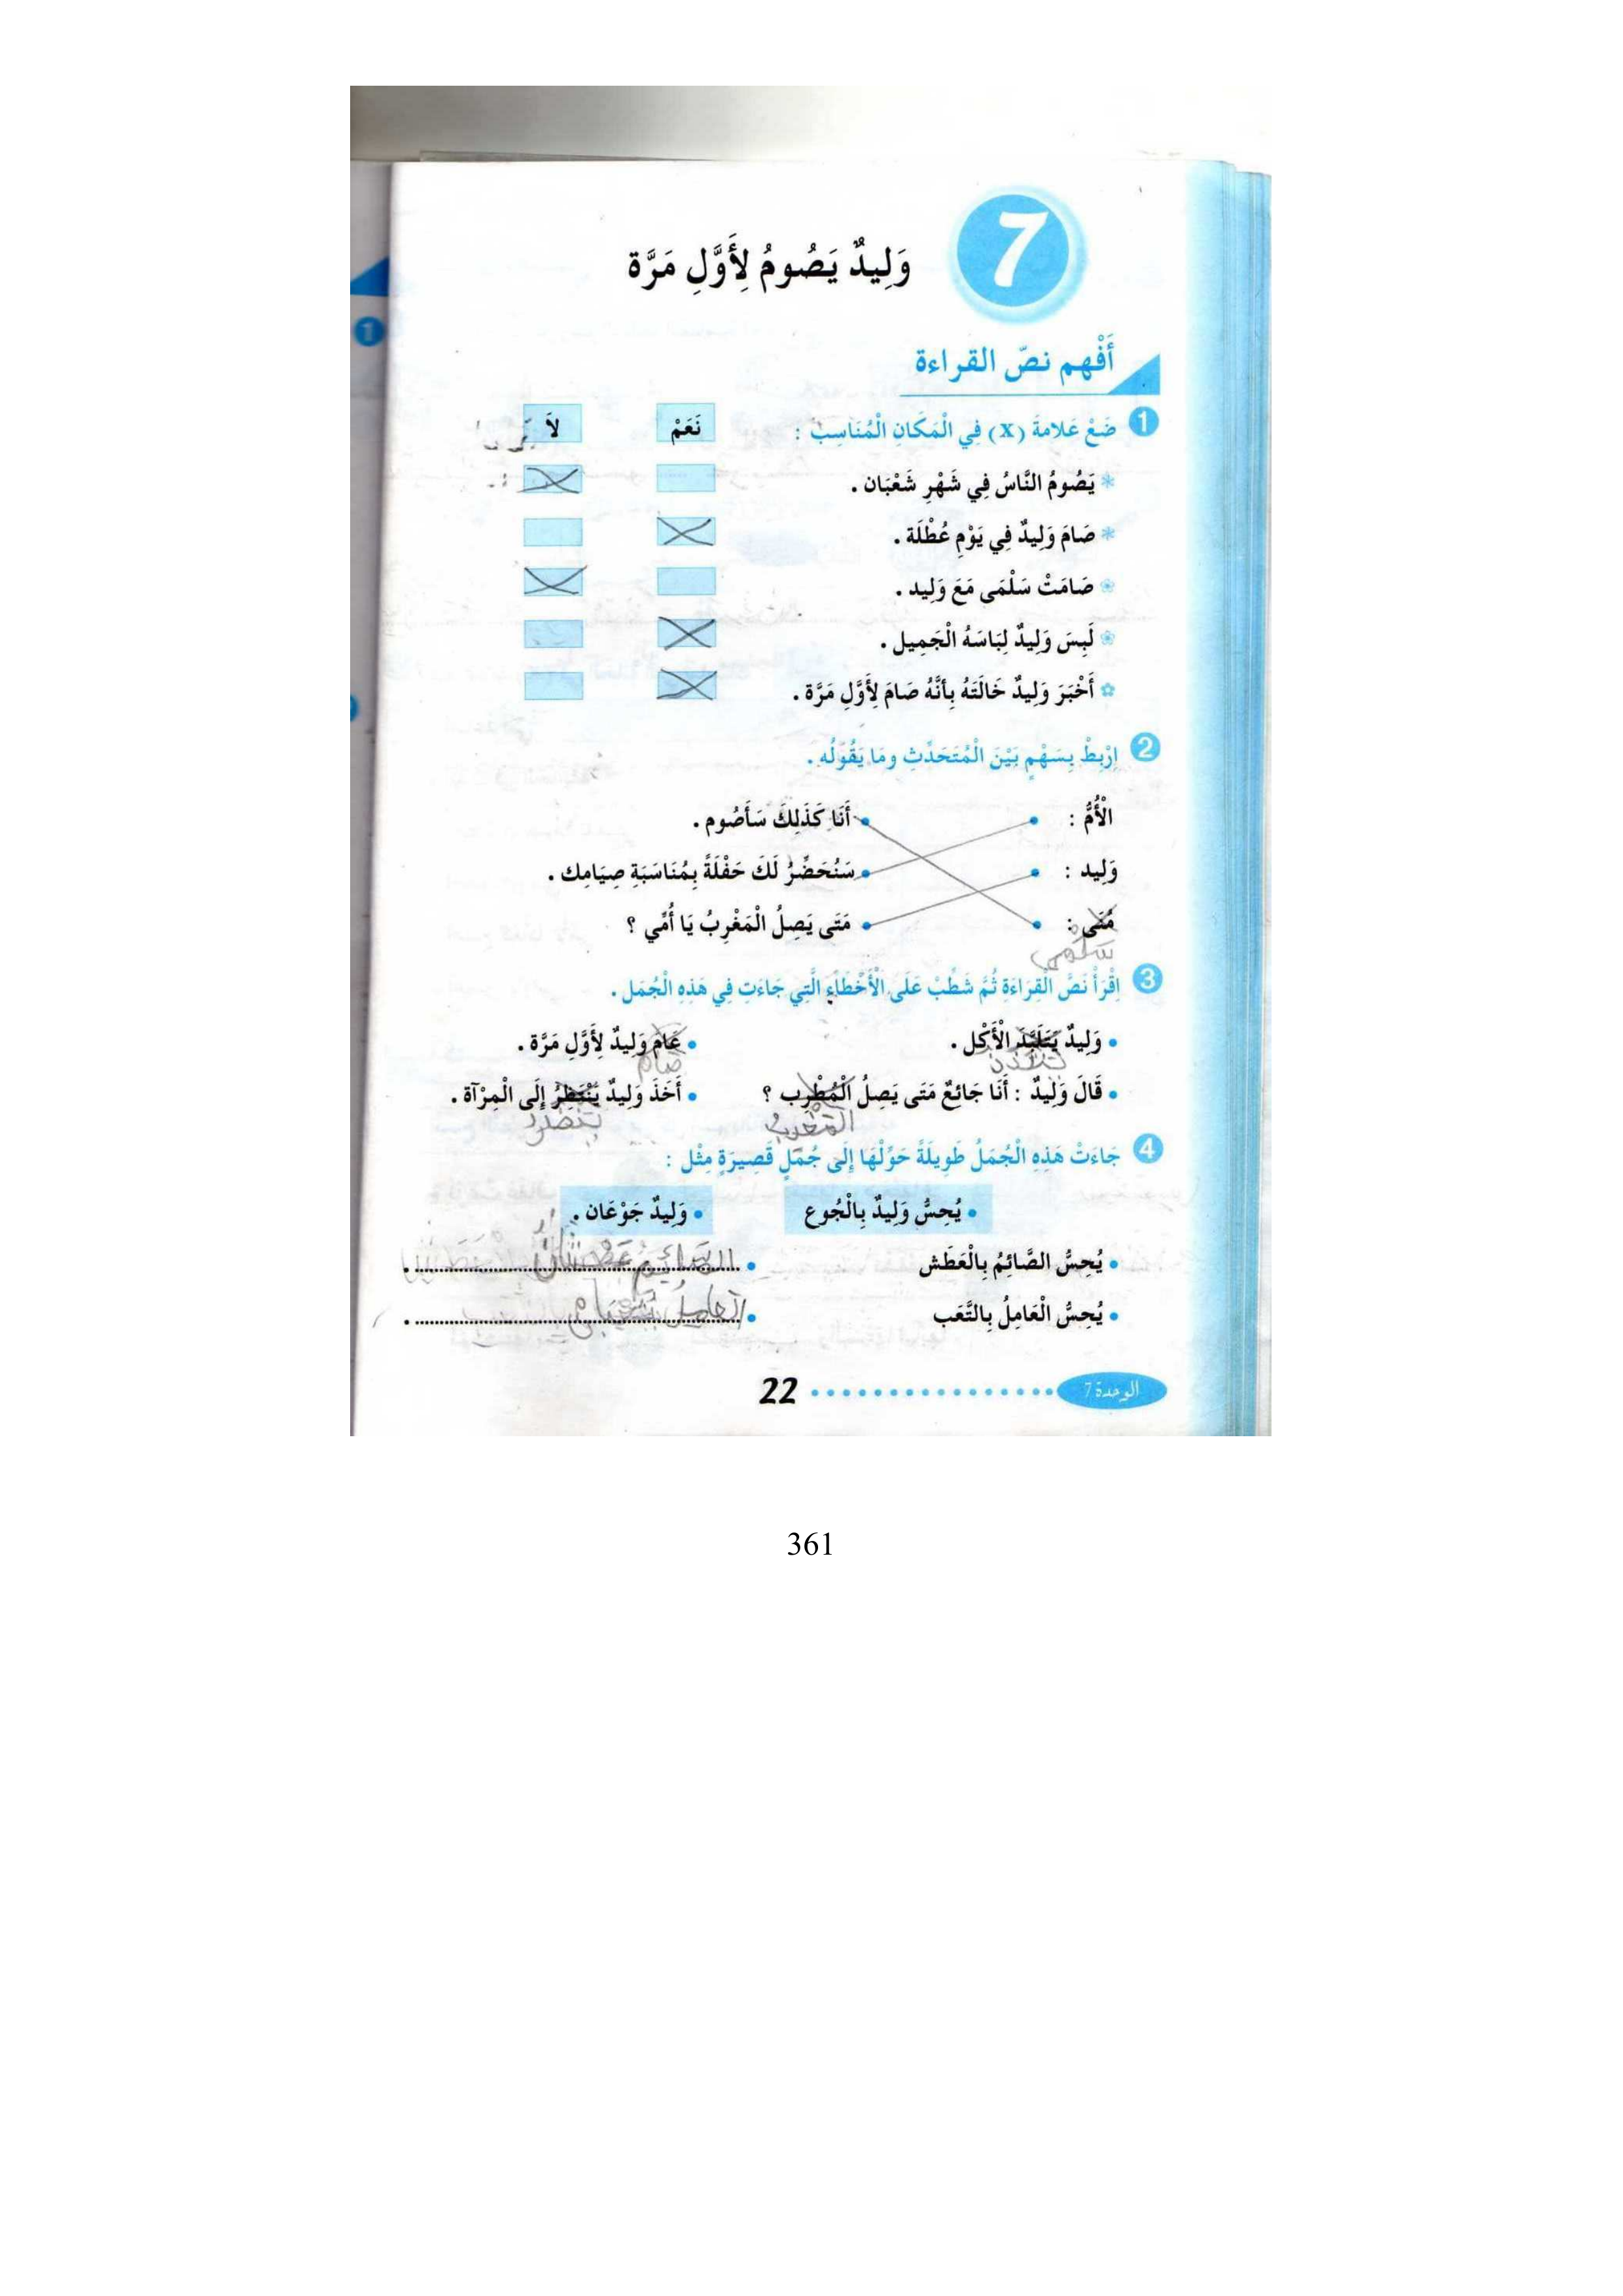 7
وَلِيدٌ يَصُومُ لِأَوَّلِ مَرَّة
أَفْهم نصّ القراءة
1 ضَعْ عَلامةَ (X) فِي الْمَكَانِ الْمُنَاسِبْ : نَعَمْ لاَ
* يَصُومُ النَّاسُ فِي شَهْرِ شَعْبَان .
* صَامَ وَلِيدٌ فِي يَوْمِ عُطْلَة .
صَامَتْ سَلْمَى مَعَ وَلِيد .
لَبِسَ وَلِيدٌ لِبَاسَهُ الْجَمِيل .
أَخْبَرَ وَلِيدٌ خَالَتَهُ بِأَنَّهُ صَامَ لِأَوَّلِ مَرَّة .
2 اِرْبِطْ بِسَهْمٍ بَيْنَ الْمُتَحَدِّثِ ومَا يَقُولُه .
الْأُمُّ : • • أَنَا كَذَلِكَ سَأَصُوم .
وَلِيد : • • سَنُحَضِّرُ لَكَ حَفْلَةً بِمُنَاسَبَةِ صِيَامِك .
مُنَى : • • مَتَى يَصِلُ الْمَغْرِبُ يَا أُمِّي ؟
سلمى
3 اِقْرَأْ نَصَّ الْقِرَاءَةِ ثُمَّ شَطِّبْ عَلَى الْأَخْطَاءِ الَّتِي جَاءَتِ فِي هَذِهِ الْجُمَل .
• وَلِيدٌ يَتَلَبَّدَ الْأَكْل . • عَامَ وَلِيدٌ لِأَوَّلِ مَرَّة .
صَام
• قَالَ وَلِيدٌ : أَنَا جَائِعٌ مَتَى يَصِلُ الْمُطْرِب ؟ • أَخَذَ وَلِيدٌ يَنْتَظِرُ إِلَى الْمِرْآة .
المغرب
4 جَاءَتْ هَذِهِ الْجُمَلُ طَوِيلَةً حَوِّلْهَا إِلَى جُمَلٍ قَصِيرَةٍ مِثْل :
• يُحِسُّ وَلِيدٌ بِالْجُوع • وَلِيدٌ جَوْعَان .
• يُحِسُّ الصَّائِمُ بِالْعَطَش • الصائم عطشان .
• يُحِسُّ الْعَامِلُ بِالتَّعَب • العامل تعبان .
الوحدة 7 22
361